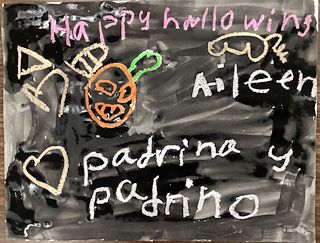 Happy hallowins
Aileen
padrina y
padrino